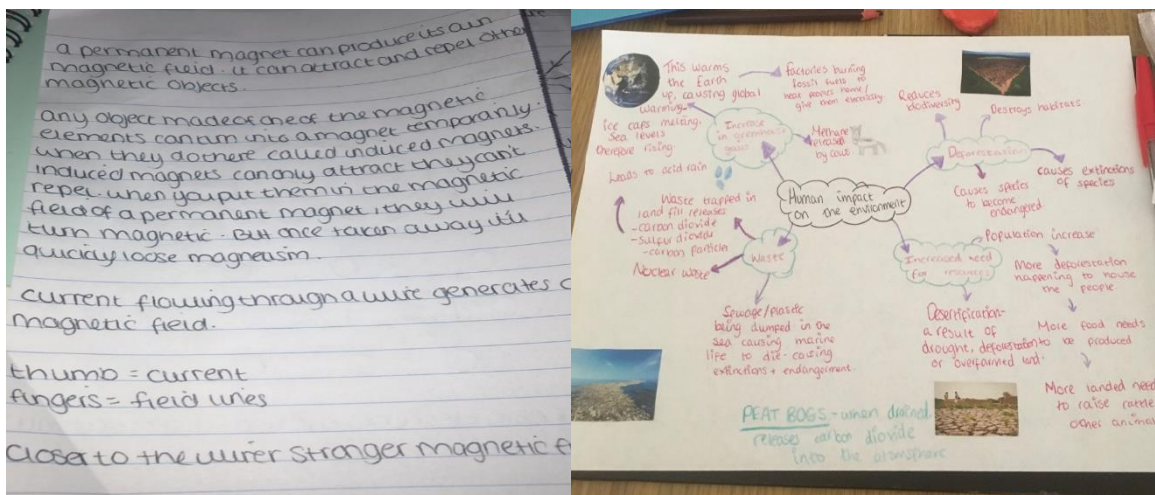 a permanent magnet can produce its own
magnetic field. it can attract and repel other
magnetic objects.
any object made of one of the magnetic
elements can turn into a magnet temporarily.
when they do there called induced magnets.
induced magnets can only attract they can't
repel. when you put them in the magnetic
field of a permanent magnet, they will
turn magnetic. But once taken away it'll
quickly loose magneusm.
current flowing through a wire generates a
magnetic field.
thumb = current
fingers = field lines
closer to the wire stronger magnetic
This warms
the Earth
up, causing global
warming.
ice caps melting.
Sea levels
therefore rising.
Increase
in greenhouse
gases
factories burning
fossil fuels to
heat peoples home/
give them electricity.
Methane
released
by cows
Reduces
biodiversity
Destroys habitats
Deforestation
causes extinctions
of species
Causes species
to become
endangered.
Human impact
on the environment
Leads to acid rain
Waste trapped in
land fill releases
-carbon dioxide
-sulfur dioxide
-carbon particle
Nuclear waste
Waste
Sewage/plastic
being dumped in the
sea causing marine
life to die - causing
extinctions + endangerment.
Increased need
for resources
Population increase
More deforestation
happening to house
the people
More food needs
to be produced
More landed need
to raise cattle
other animal
Desertification-
a result of
drought, deforestation
or overfarmed land.
PEAT BOGS - when drained,
releases carbon dioxide
into the atomsphere